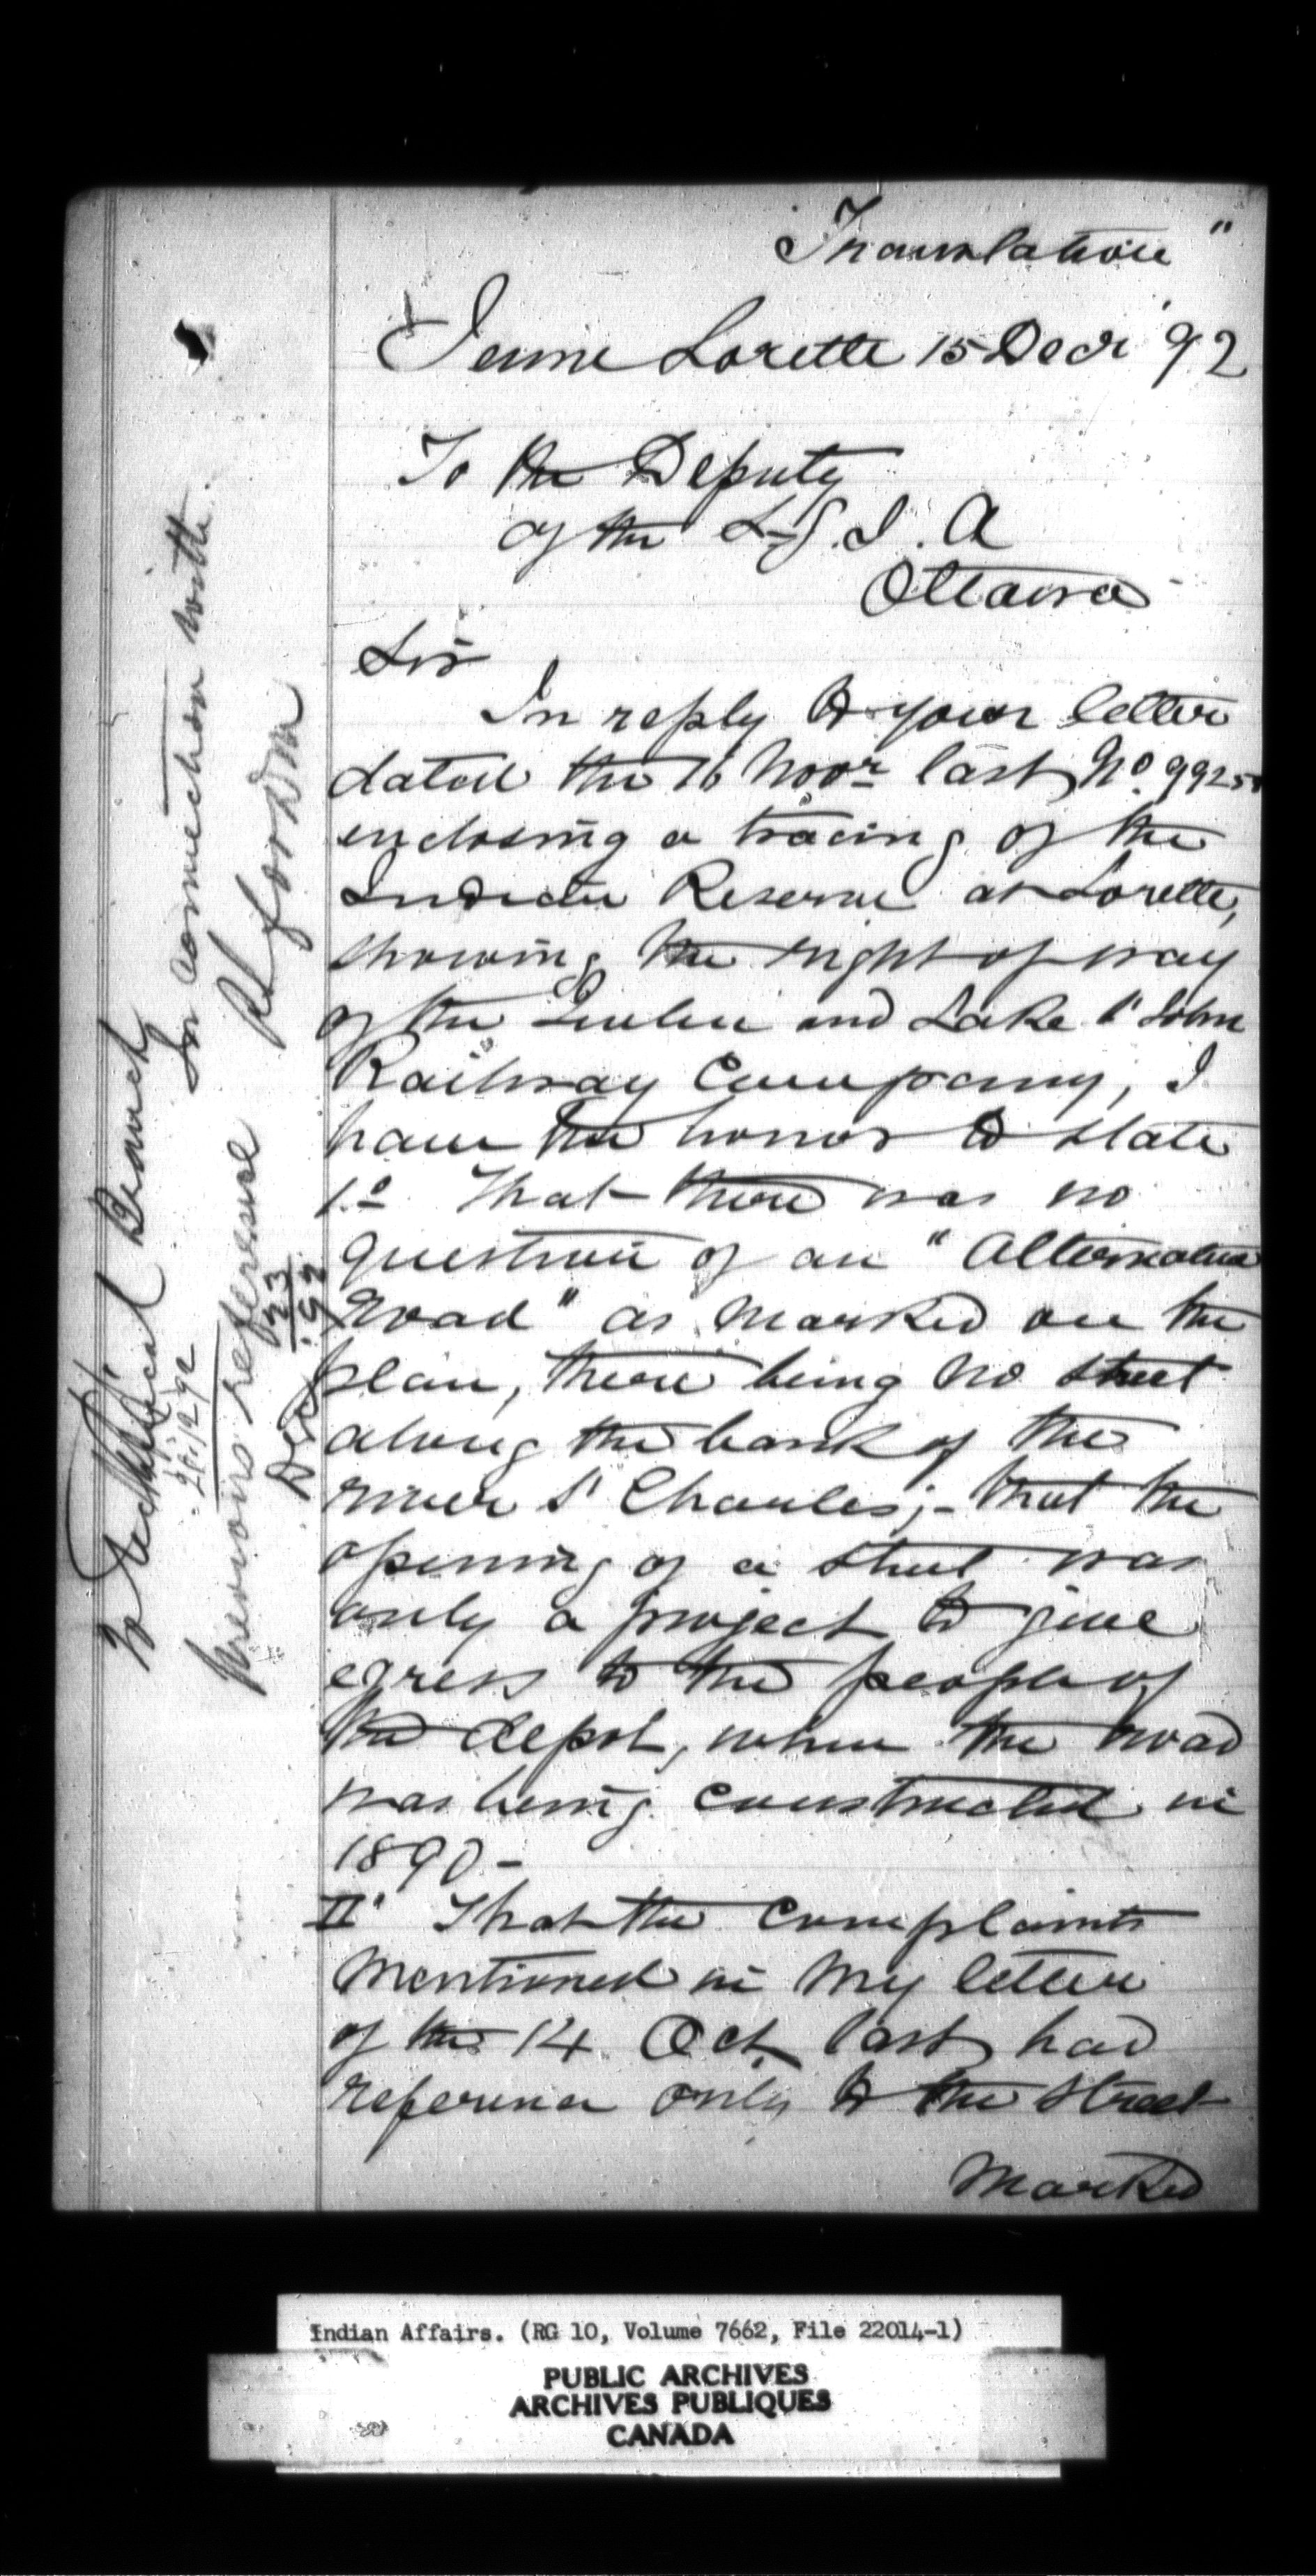 "Translation"
Jeune Lorette 15 Decr '92
To the Deputy
of the S.G.I.A
Ottawa
Sir
In reply to your letter
dated the 16 Novr last, No. 9925
enclosing a tracing of the
Indian Reserve at Lorette,
showing the right of way
of the Quebec and Lake St John
Railway Company, I
have the honor to state
1.o That there was no
question of an "Alternative
road" as marked on the
plan, there being no street
along the bank of the
river St Charles; - that the
opening of a street was
only a project to give
egress to the people of
the depot, when the road
was being constructed in
1890 -
II° That the complaints
mentioned in my letter
of the 14 Oct last, had
reference only to the street
marked
To Technical Branch
In connection with
previous reference
Decr 23
.92
Indian Affairs. (RG 10, Volume 7662, File 22014-1)
PUBLIC ARCHIVES
ARCHIVES PUBLIQUES
CANADA